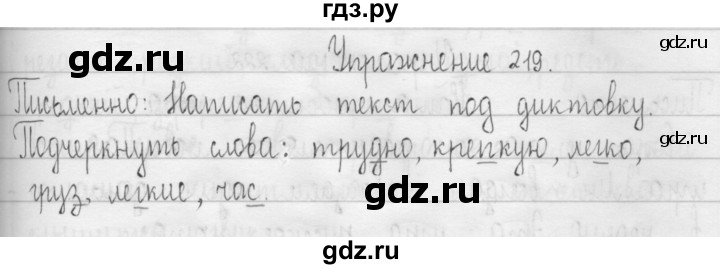 гдз.ру
gdz.ru
gdz.ru
Упражнение 219.
Письменно: Написать текст под диктовку.
gdz.ru
gdz.ru
Подчеркнуть слова: трудно, крепкую, легко,
груз, легкие, час
gdz.ru
gdz.ru